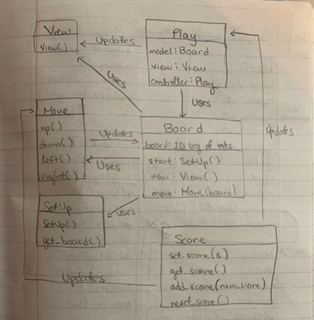 View
view()
Updates
Play
model: Board
view: View
controller: Play
Uses
Uses
Updates
Move
up()
down()
left()
right()
Updates
Uses
Board
board: 2D arry of ints.
start: SetUp()
view: View()
move: Move(board)
SetUp
SetUp()
get_board()
Uses
Updates
Score
set_score(s)
get_score()
add_score(num_score)
reset_score()